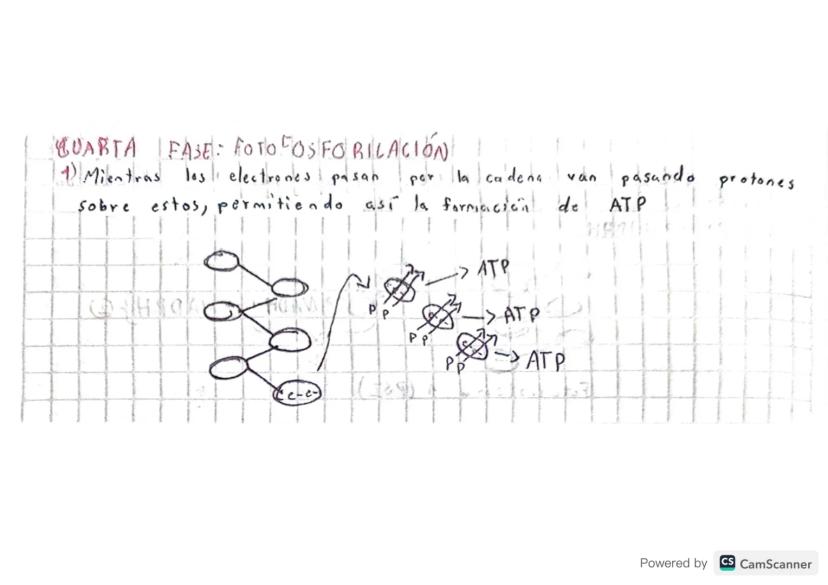 CUARTA FASE: FOTOFOSFORILACIÓN
1) Mientras los electrones pasan por la cadena van pasando protones
sobre estos, permitiendo así la formación de ATP
→ ATP
P P
→ ATP
P P
→ ATP
P P
e-e-
Powered by CS CamScanner